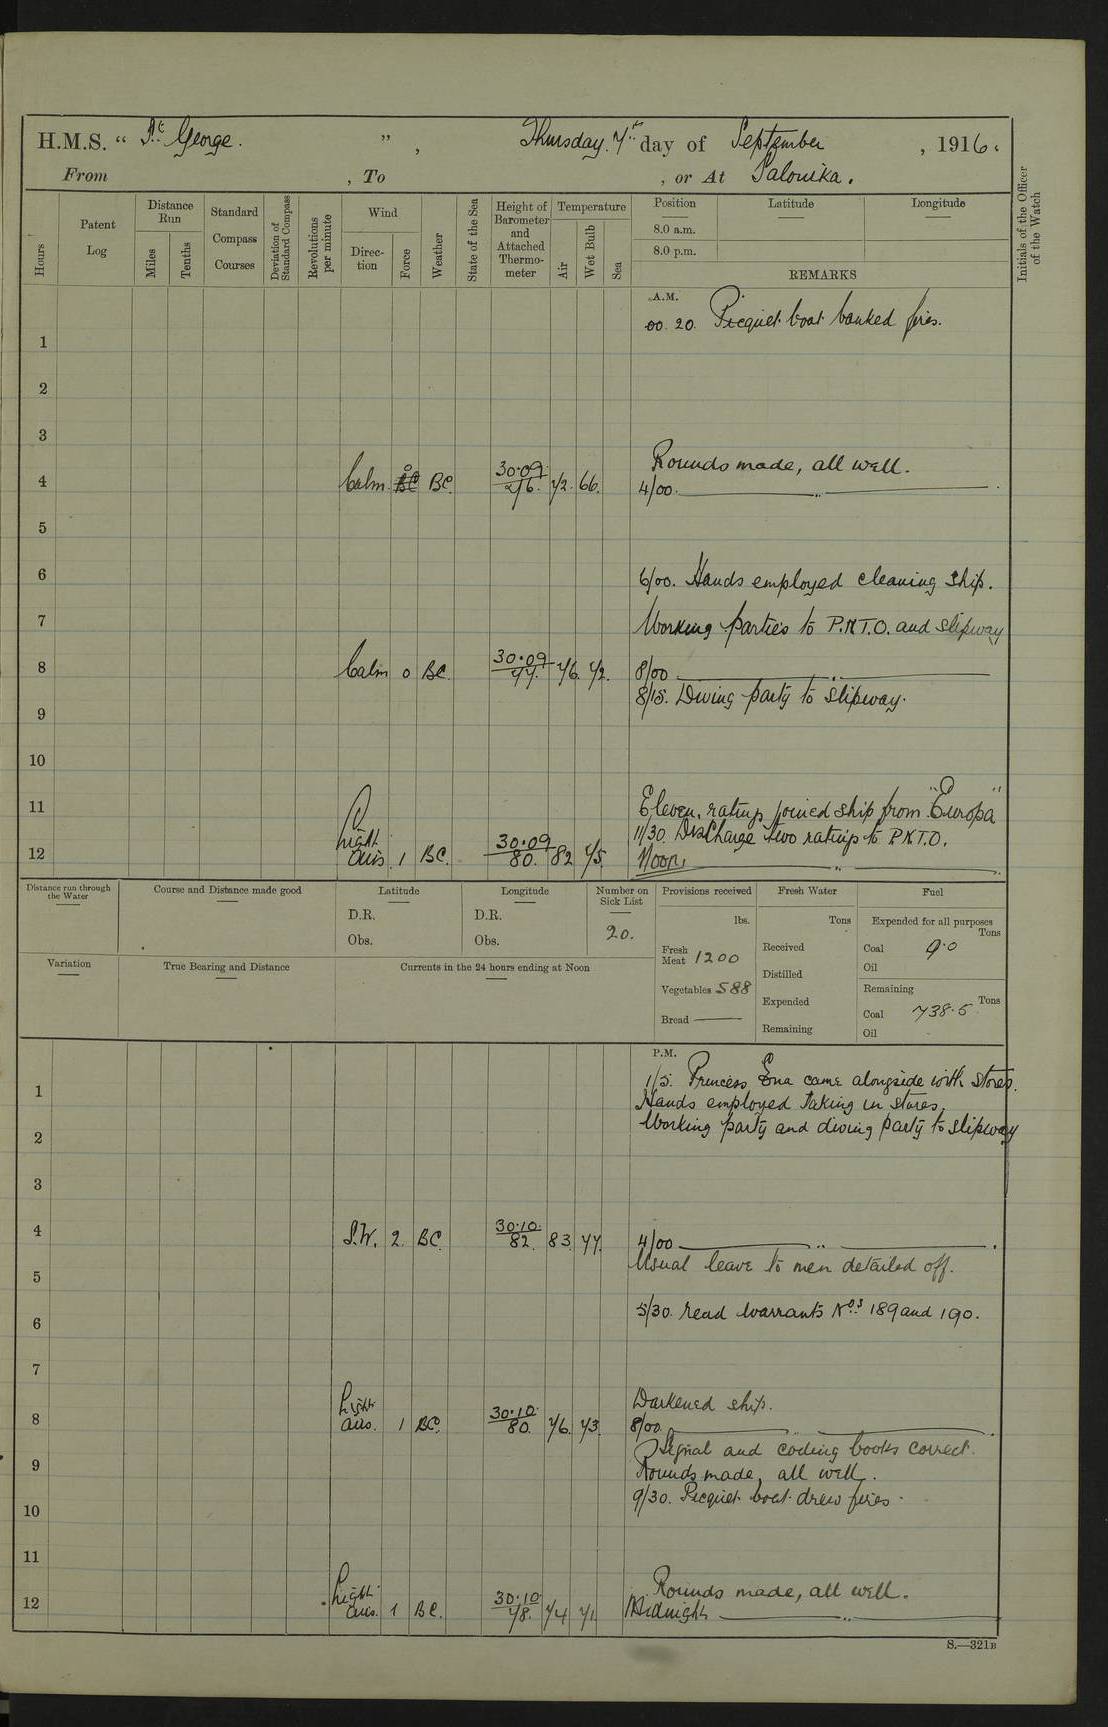 H.M.S. “ St George. ” , Thursday, 7th day of September , 1916.
From , To , or At Salonika.
Hours
Patent Log
Distance Run
Miles
Tenths
Standard Compass Courses
Deviation of Standard Compass
Revolutions per minute
Wind
Direc-tion
Force
Weather
State of the Sea
Height of Barometer and Attached Thermo-meter
Temperature
Air
Wet Bulb
Sea
Position Latitude Longitude
8.0 a.m.
8.0 p.m.
REMARKS
Initials of the Officer of the Watch
A.M.
00.20. Picquet boat banked fires.
1
2
3
Rounds made, all well.
4 Calm 0 BC. 30.09 76. 72. 66. 4/00. ———— „ ————
5
6 6/00. Hands employed cleaning ship.
7 Working parties to P.N.T.O. and slipway
8 Calm 0 BC. 30.09 77. 76. 72. 8/00 ———— „ ————
8/15. Diving party to slipway.
9
10
11 Eleven ratings joined ship from "Europa"
11/30. Discharge two ratings to P.N.T.O.
12 Light airs. 1 BC. 30.09 80. 82 75. Noon. ———— „ ————
Distance run through the Water
Course and Distance made good
Latitude
D.R.
Obs.
Longitude
D.R.
Obs.
Number on Sick List
20.
Provisions received
lbs.
Fresh Meat 1200
Vegetables 588
Bread ——
Fresh Water
Tons
Received
Distilled
Expended
Remaining
Fuel
Expended for all purposes
Tons
Coal 9.0
Oil
Remaining
Tons
Coal 738.5
Oil
Variation
True Bearing and Distance
Currents in the 24 hours ending at Noon
P.M.
1/5. Princess Ena came alongside with stores.
1 Hands employed taking in stores.
Working party and diving party to slipway
2
3
4 S.W. 2 BC. 30.10. 82. 83. 77. 4/00 ———— „ ————
Usual leave to men detailed off.
5
5/30. read warrants Nos 189 and 190.
6
7
Darkened ship.
8 Light airs. 1 BC. 30.10. 80. 76. 73. 8/00. ———— „ ————
Signal and coding books correct.
9 Rounds made, all well.
9/30. Picquet boat drew fires.
10
11
Rounds made, all well.
12 Light airs. 1 BC. 30.10 78. 74 71. Midnight ———— „ ————
S.—321B